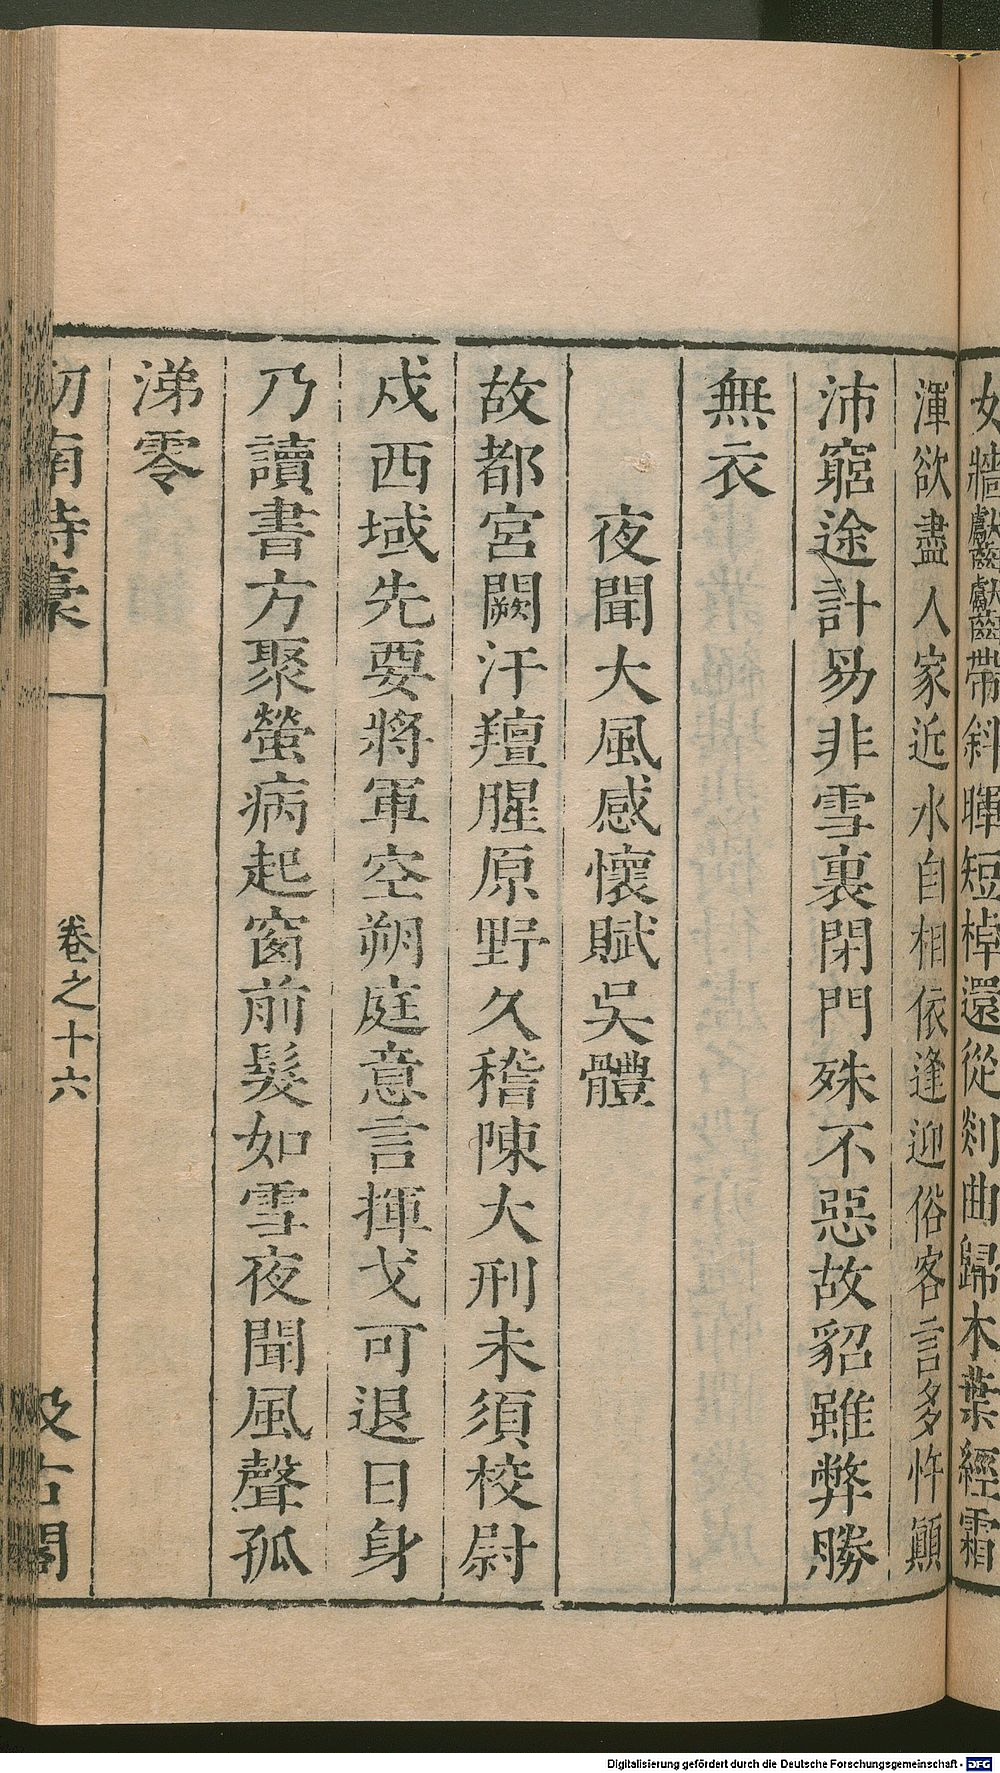 女牆𪘨𪘨帶斜暉短棹還從剡曲歸木葉經霜
渾欲盡人家近水自相依逢迎俗客言多忤顛
沛窮途計易非雪裏閉門殊不惡故貂雖弊勝
無衣
夜聞大風感懷賦吳體
故都宮闕汗羶腥原野久稽陳大刑未須校尉
戍西域先要將軍空朔庭意言揮戈可退日身
乃讀書方聚螢病起窗前髮如雪夜聞風聲孤
涕零
劒南詩稾
卷之十六
汲古閣
Digitalisierung gefördert durch die Deutsche Forschungsgemeinschaft - DFG